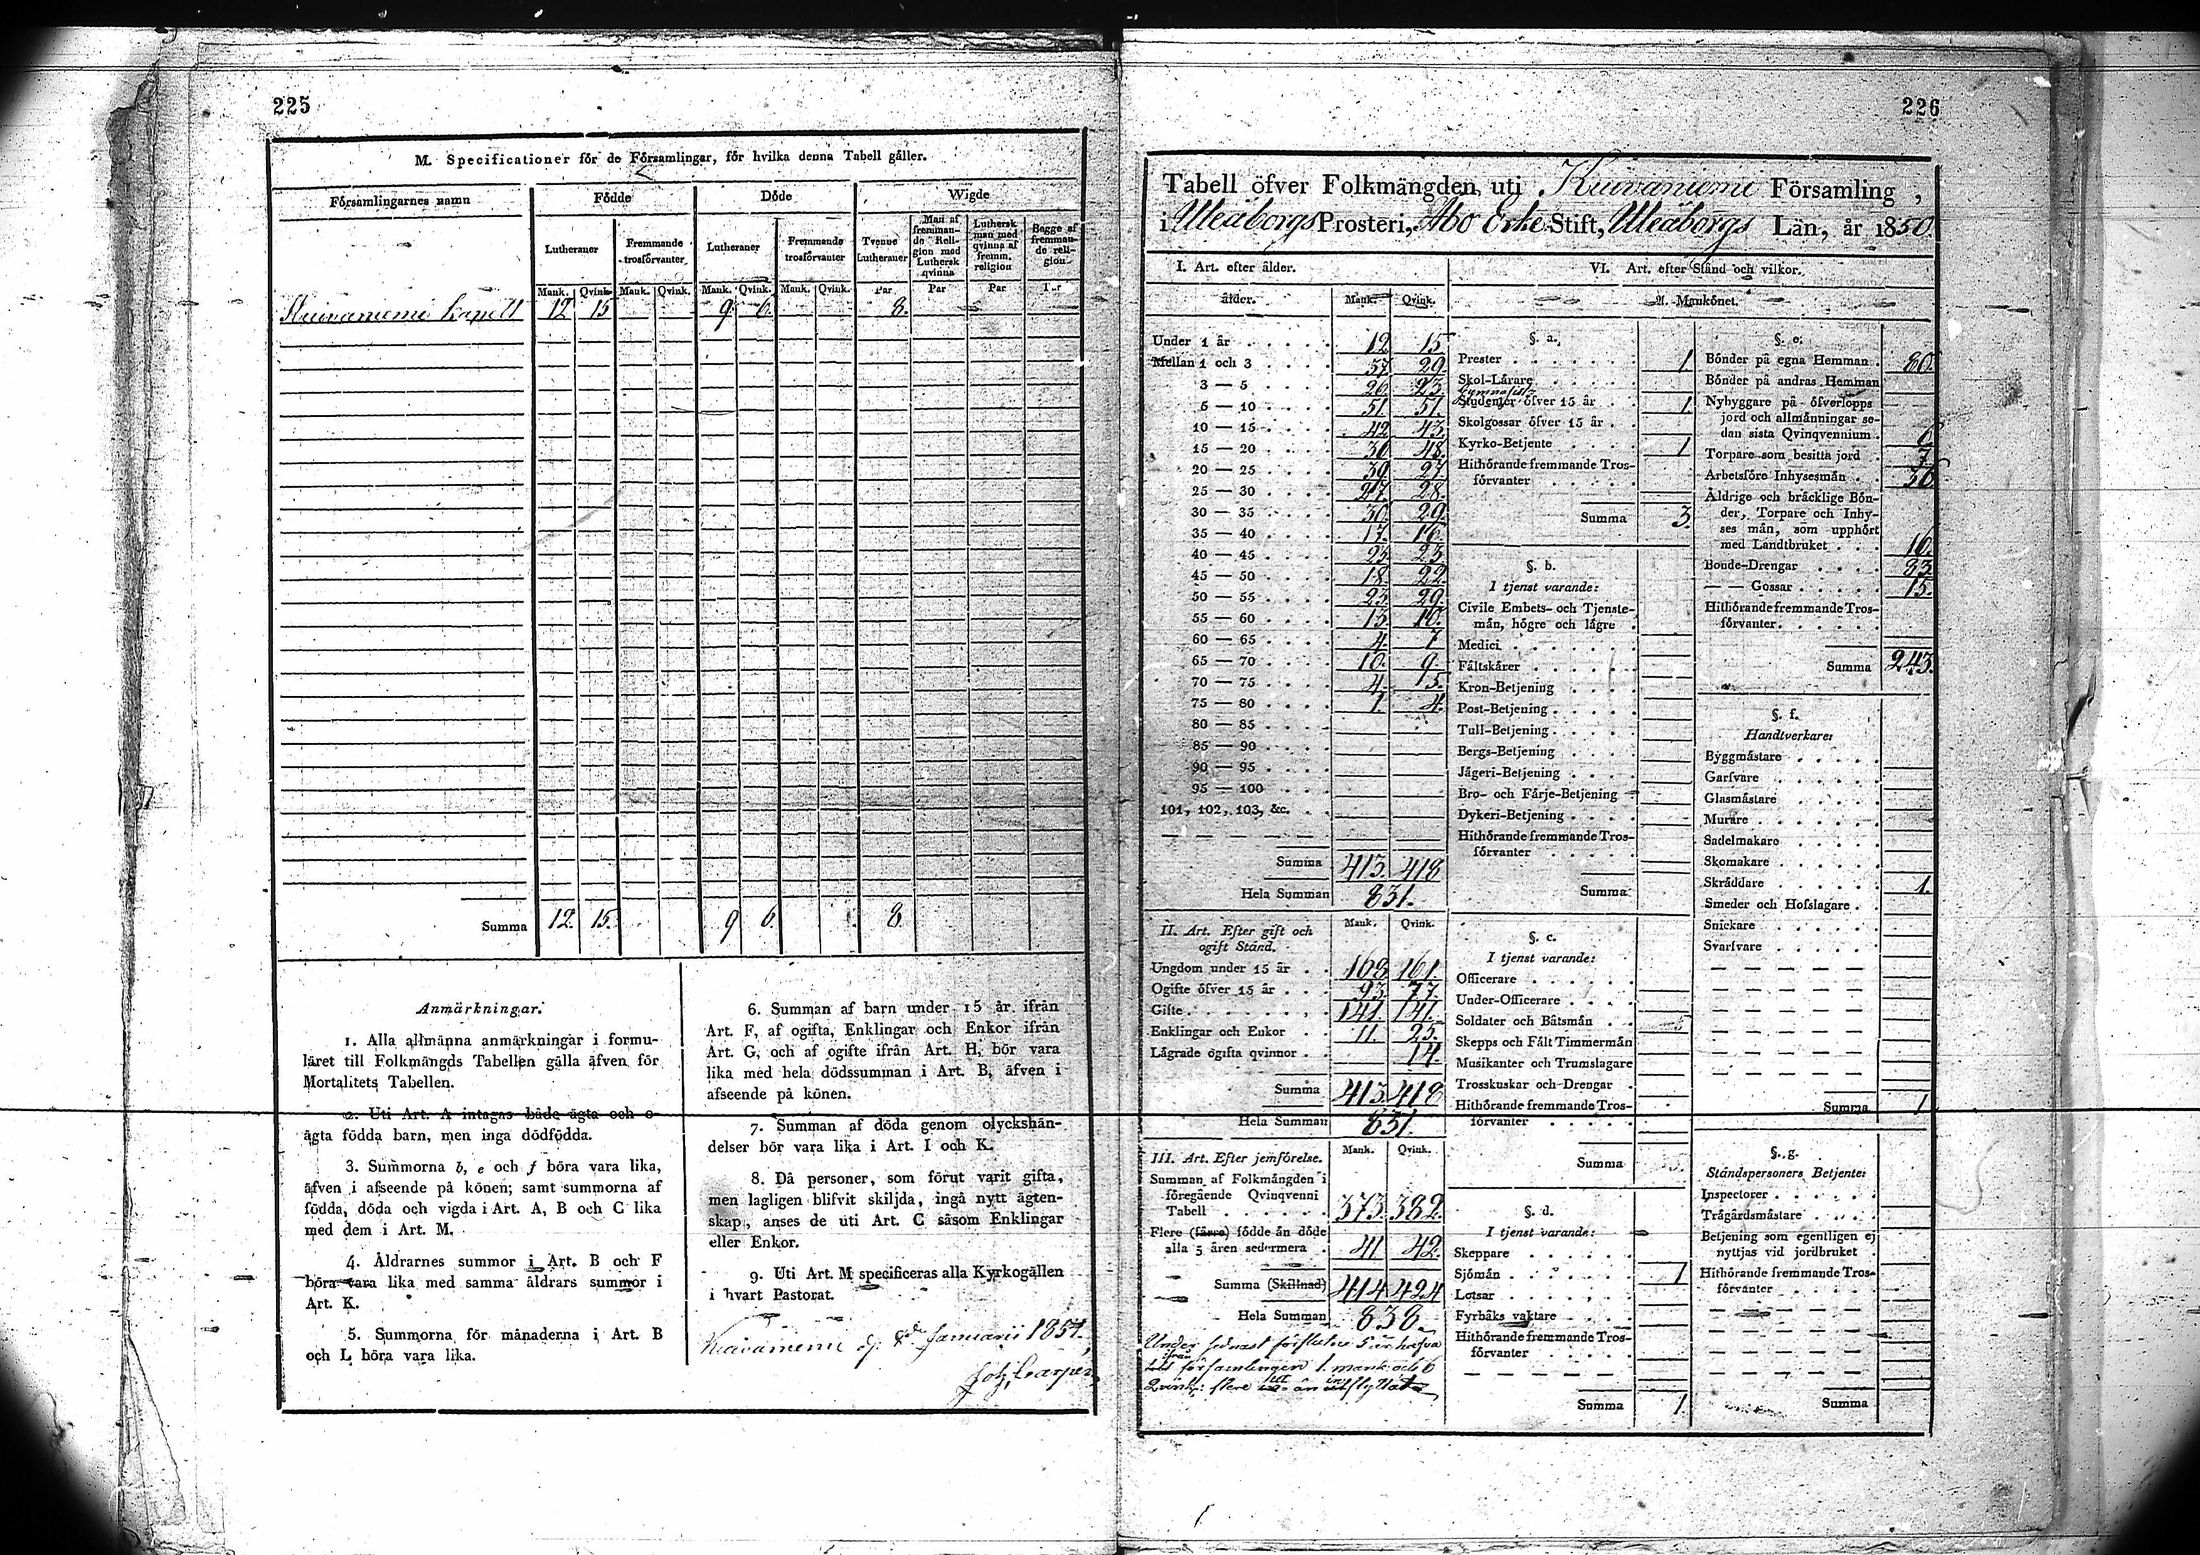 225
M. Specificationer för de Församlingar, för hvilka denna Tabell gäller.
Församlingarnes namn
Födde
Döde
Wigde
Lutheraner
Fremmande trosförvanter
Lutheraner
Fremmande trosförvanter
Tvenne Lutheraner
Man af fremmande Religion med Luthersk qvinna
Luthersk man med qvinna af fremm. religion
Begge af fremmande religion
Mank. Qvink. Mank. Qvink. Mank. Qvink. Mank. Qvink. Par Par Par Par
Kuivaniemi kapell 12 15 9 6. 8.
Summa 12. 15. 9 6. 8
Anmärkningar.
1. Alla allmänna anmärkningar i formu-
läret till Folkmängds Tabellen gälla äfven för
Mortalitets Tabellen.
2. Uti Art. A intagas både ägta och o-
ägta födda barn, men inga dödfödda.
3. Summorna b, e och f böra vara lika,
äfven i afseende på könen; samt summorna af
födda, döda och vigda i Art. A, B och C lika
med dem i Art. M.
4. Åldrarnes summor i Art. B och F
böra vara lika med samma åldrars summor i
Art. K.
5. Summorna för månaderna i Art. B
och L böra vara lika.
6. Summan af barn under 15 år ifrån
Art. F, af ogifta, Enklingar och Enkor ifrån
Art. G, och af ogifte ifrån Art. H, bör vara
lika med hela dödssumman i Art. B, äfven i
afseende på könen.
7. Summan af döda genom olyckshän-
delser bör vara lika i Art. I och K.
8. Då personer, som förut varit gifta,
men lagligen blifvit skiljda, ingå nytt ägten-
skap, anses de uti Art. C såsom Enklingar
eller Enkor.
9. Uti Art. M specificeras alla Kyrkogällen
i hvart Pastorat.
Kuivaniemi Januarii 1851.
226
Tabell öfver Folkmängden, uti Kuivaniemi Församling,
i Uleåborgs Prosteri, Åbo Erke Stift, Uleåborgs Län, år 1850.
I. Art. efter ålder.
ålder. Mank. Qvink.
Under 1 år 12 15
Mellan 1 och 3 37. 29.
3 — 5 26. 23.
5 — 10 51. 51.
10 — 15 42. 43.
15 — 20 30 48.
20 — 25 39. 27
25 — 30 27. 28.
30 — 35 30. 29.
35 — 40 17. 16.
40 — 45 23. 23.
45 — 50 18. 22.
50 — 55 23. 29.
55 — 60 13. 10.
60 — 65 4. 7
65 — 70 10. 9.
70 — 75 4. 5.
75 — 80 1. 4.
80 — 85
85 — 90
90 — 95
95 — 100
101, 102, 103, &c.
Summa 413. 418
Hela Summan 831.
II. Art. Efter gift och
ogift Stånd. Mank. Qvink.
Ungdom under 15 år 168 161.
Ogifte öfver 15 år 93. 77.
Gifte 141. 141.
Enklingar och Enkor 11. 25.
Lägrade ogifta qvinnor 14.
Summa 413. 418
Hela Summan 831.
III. Art. Efter jemförelse. Mank. Qvink.
Summan af Folkmängden i
föregående Qvinqvenni
Tabell 373. 382.
Flere (färre) födde än döde
alla 5 åren sedermera 41 42.
Summa (Skillnad) 414 424
Hela Summan 838.
Under sednast förflutne 5 år hafva
från församlingen 1. mank. och 6
Qvink: flere ut än inflyttat
VI. Art. efter Stånd och vilkor.
A. Mankönet.
§. a.
Prester 1
Skol-Lärare
Gymnasist
Studenter öfver 15 år 1
Skolgossar öfver 15 år
Kyrko-Betjente 1
Hithörande fremmande Tros-
förvanter
Summa 3.
§. b.
I tjenst varande:
Civile Embets- och Tjenste-
män, högre och lägre
Medici
Fältskärer
Kron-Betjening
Post-Betjening
Tull-Betjening
Bergs-Betjening
Jägeri-Betjening
Bro- och Färje-Betjening
Dykeri-Betjening
Hithörande fremmande Tros-
förvanter
Summa
§. c.
I tjenst varande:
Officerare
Under-Officerare
Soldater och Båtsmän
Skepps och Fält Timmermän
Musikanter och Trumslagare
Trosskuskar och Drengar
Hithörande fremmande Tros-
förvanter
Summa
§. d.
I tjenst varande:
Skeppare
Sjömän 1
Lotsar
Fyrbåks vaktare
Hithörande fremmande Tros-
förvanter
Summa 1.
§. e.
Bönder på egna Hemman 80.
Bönder på andras Hemman
Nybyggare på öfverlopps
jord och allmänningar se-
dan sista Qvinqvennium 6
Torpare som besitta jord 7
Arbetsföre Inhysesmän 36
Åldrige och bräcklige Bön-
der, Torpare och Inhy-
ses män, som upphört
med Landtbruket 16.
Bonde-Drengar 83.
— — Gossar 15.
Hithörande fremmande Tros-
förvanter
Summa 243.
§. f.
Handtverkare:
Byggmästare
Garfvare
Glasmästare
Murare
Sadelmakare
Skomakare
Skräddare 1.
Smeder och Hofslagare
Snickare
Svarfvare
Summa 1
§. g.
Ståndspersoners Betjente:
Inspectorer
Trägårdsmästare
Betjening som egentligen ej
nyttjas vid jordbruket
Hithörande fremmande Tros-
förvanter
Summa